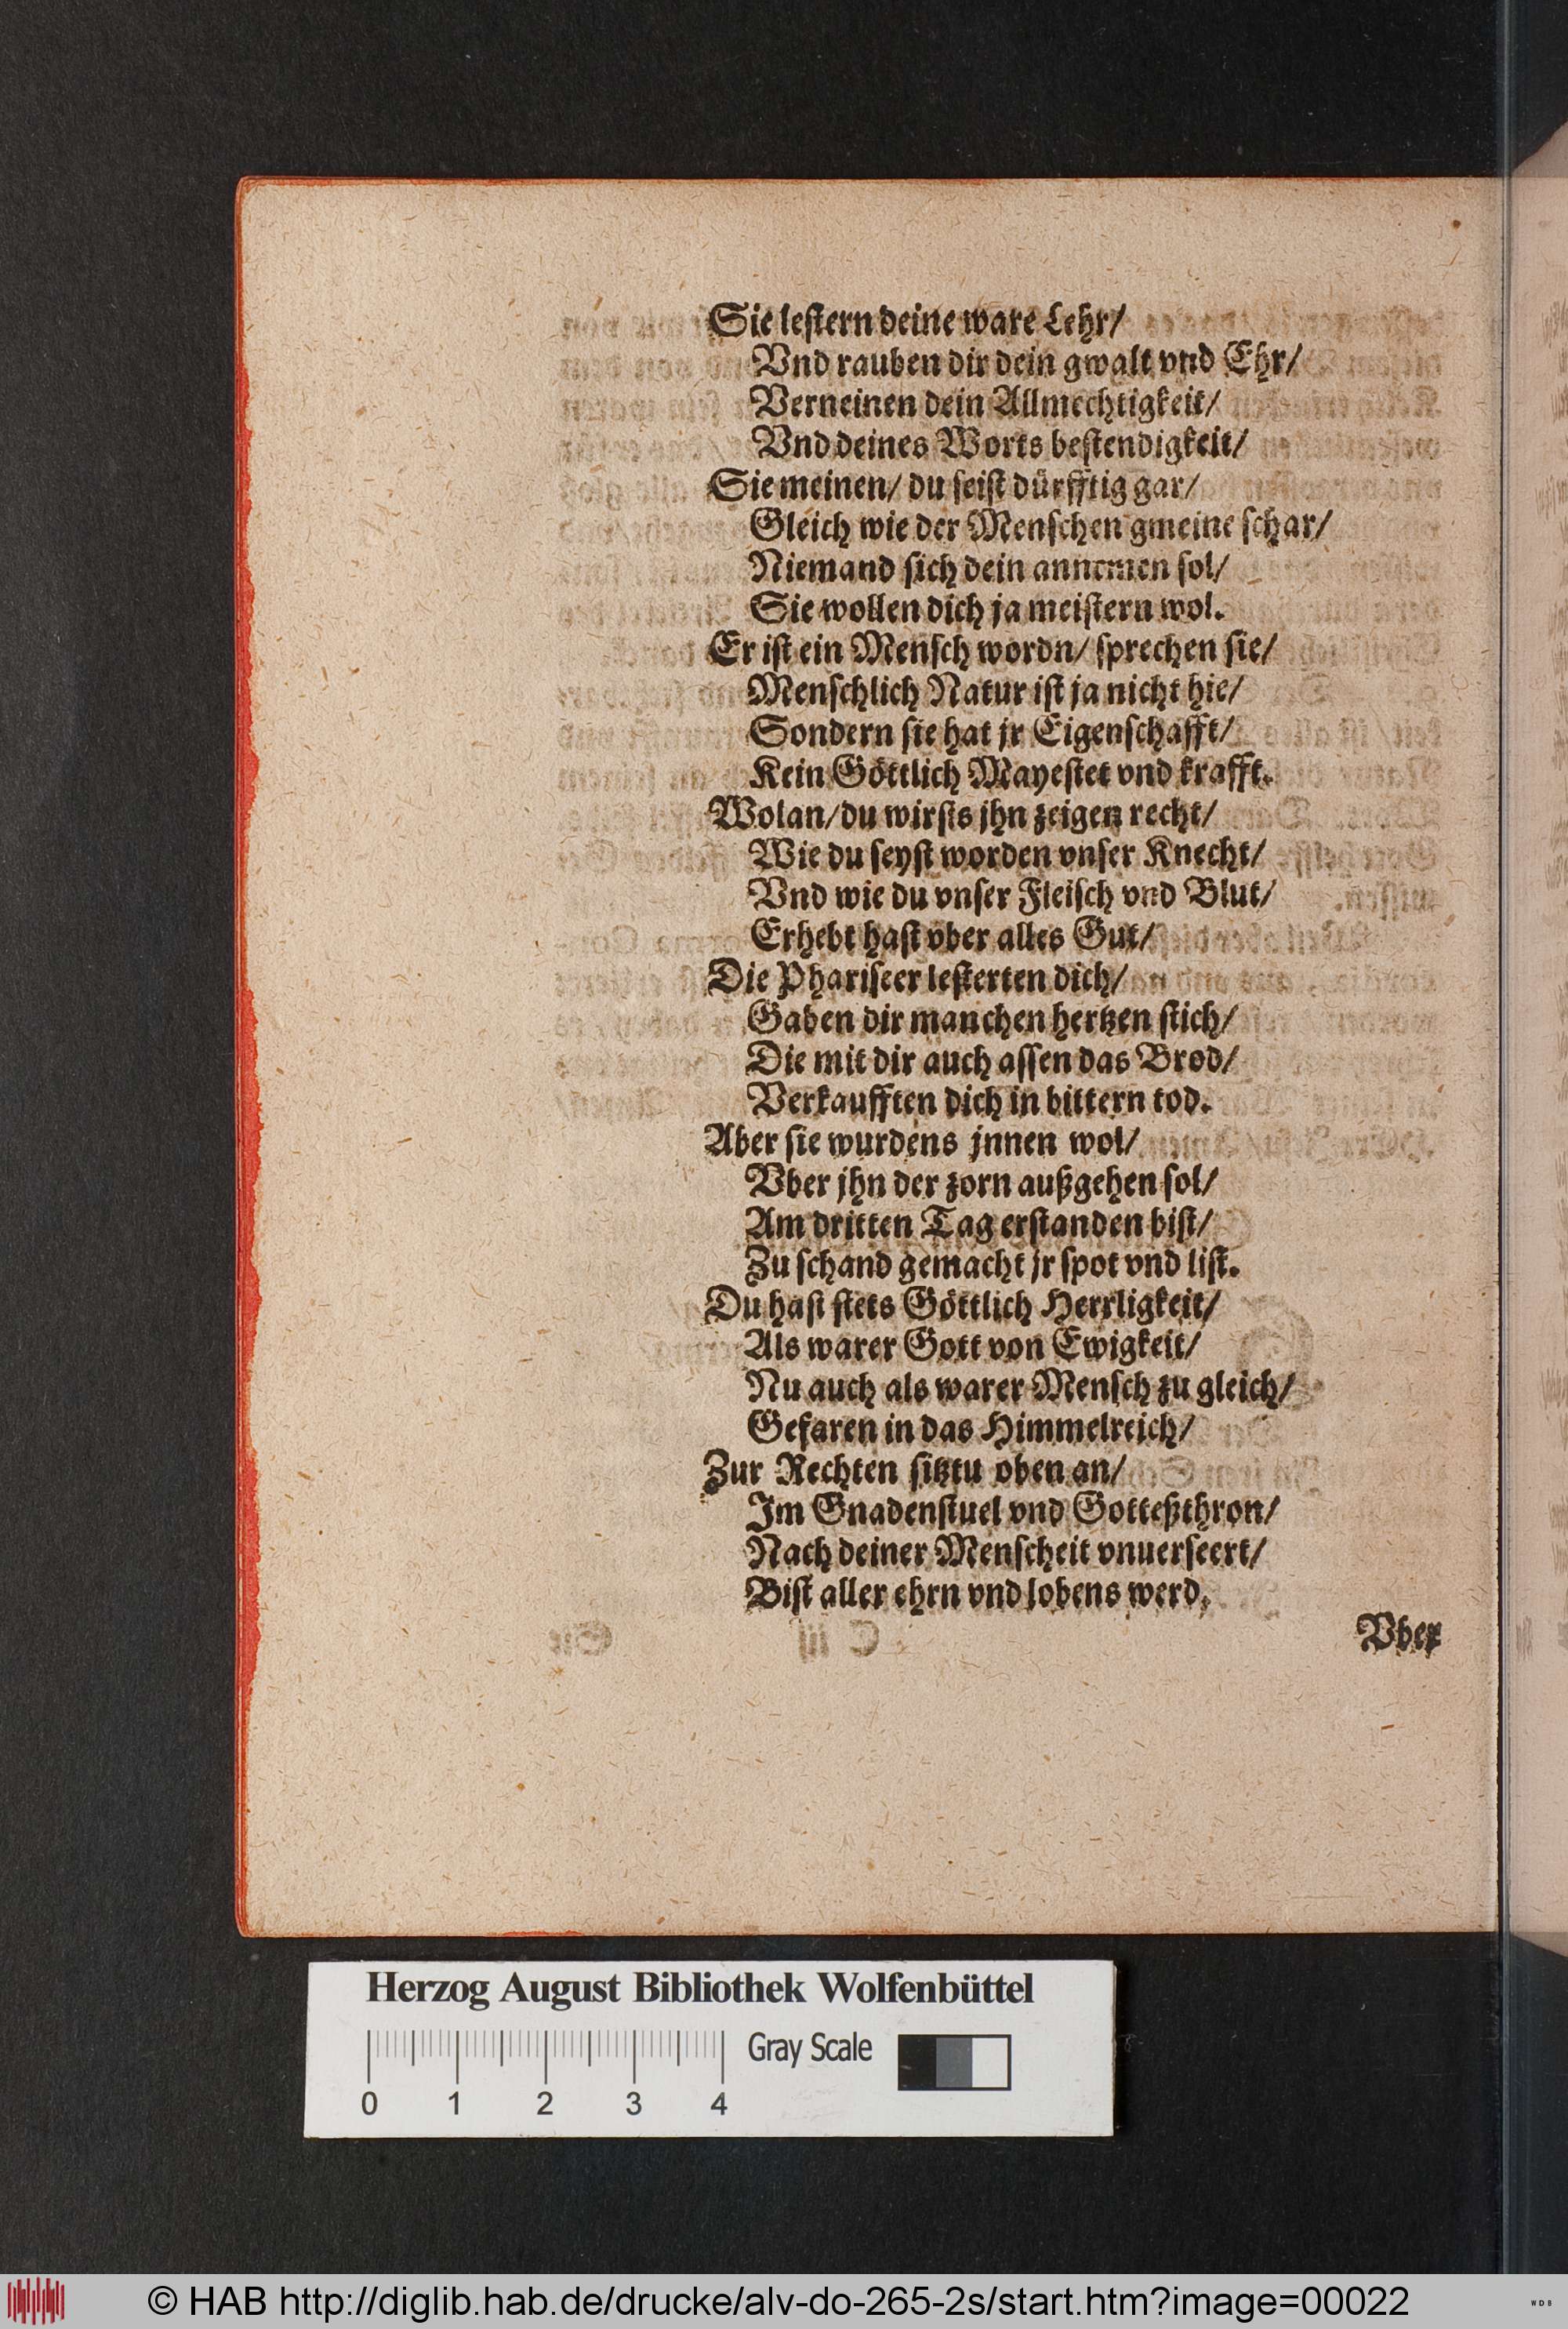 Sie lestern deine ware Lehr/
Vnd rauben dir dein gwalt vnd Ehr/
Verneinen dein Allmechtigkeit/
Vnd deines Worts bestendigkeit/
Sie meinen/ du seist dürfftig gar/
Gleich wie der Menschen gmeine schar/
Niemand sich dein annemen sol/
Sie wollen dich ja meistern wol.
Er ist ein Mensch wordn/ sprechen sie/
Menschlich Natur ist ja nicht hie/
Sondern sie hat jr Eigenschafft/
Kein Göttlich Mayestet vnd krafft.
Wolan/ du wirsts jhn zeigen recht/
Wie du seyst worden vnser Knecht/
Vnd wie du vnser Fleisch vnd Blut/
Erhebt hast vber alles Gut/
Die Phariseer lesterten dich/
Gaben dir manchen hertzen stich/
Die mit dir auch assen das Brod/
Verkaufften dich in bittern tod.
Aber sie wurdens jnnen wol/
Vber jhn der zorn außgehen sol/
Am dritten Tag erstanden bist/
Zu schand gemacht jr spot vnd list.
Du hast stets Göttlich Herrligkeit/
Als warer Gott von Ewigkeit/
Nu auch als warer Mensch zu gleich/
Gefaren in das Himmelreich/
Zur Rechten sitztu oben an/
Im Gnadenstuel vnd Gotteßthron/
Nach deiner Menscheit vnuerseert/
Bist aller ehrn vnd lobens werd.
Vber
Herzog August Bibliothek Wolfenbüttel
Gray Scale
0 1 2 3 4
© HAB http://diglib.hab.de/drucke/alv-do-265-2s/start.htm?image=00022
WDB